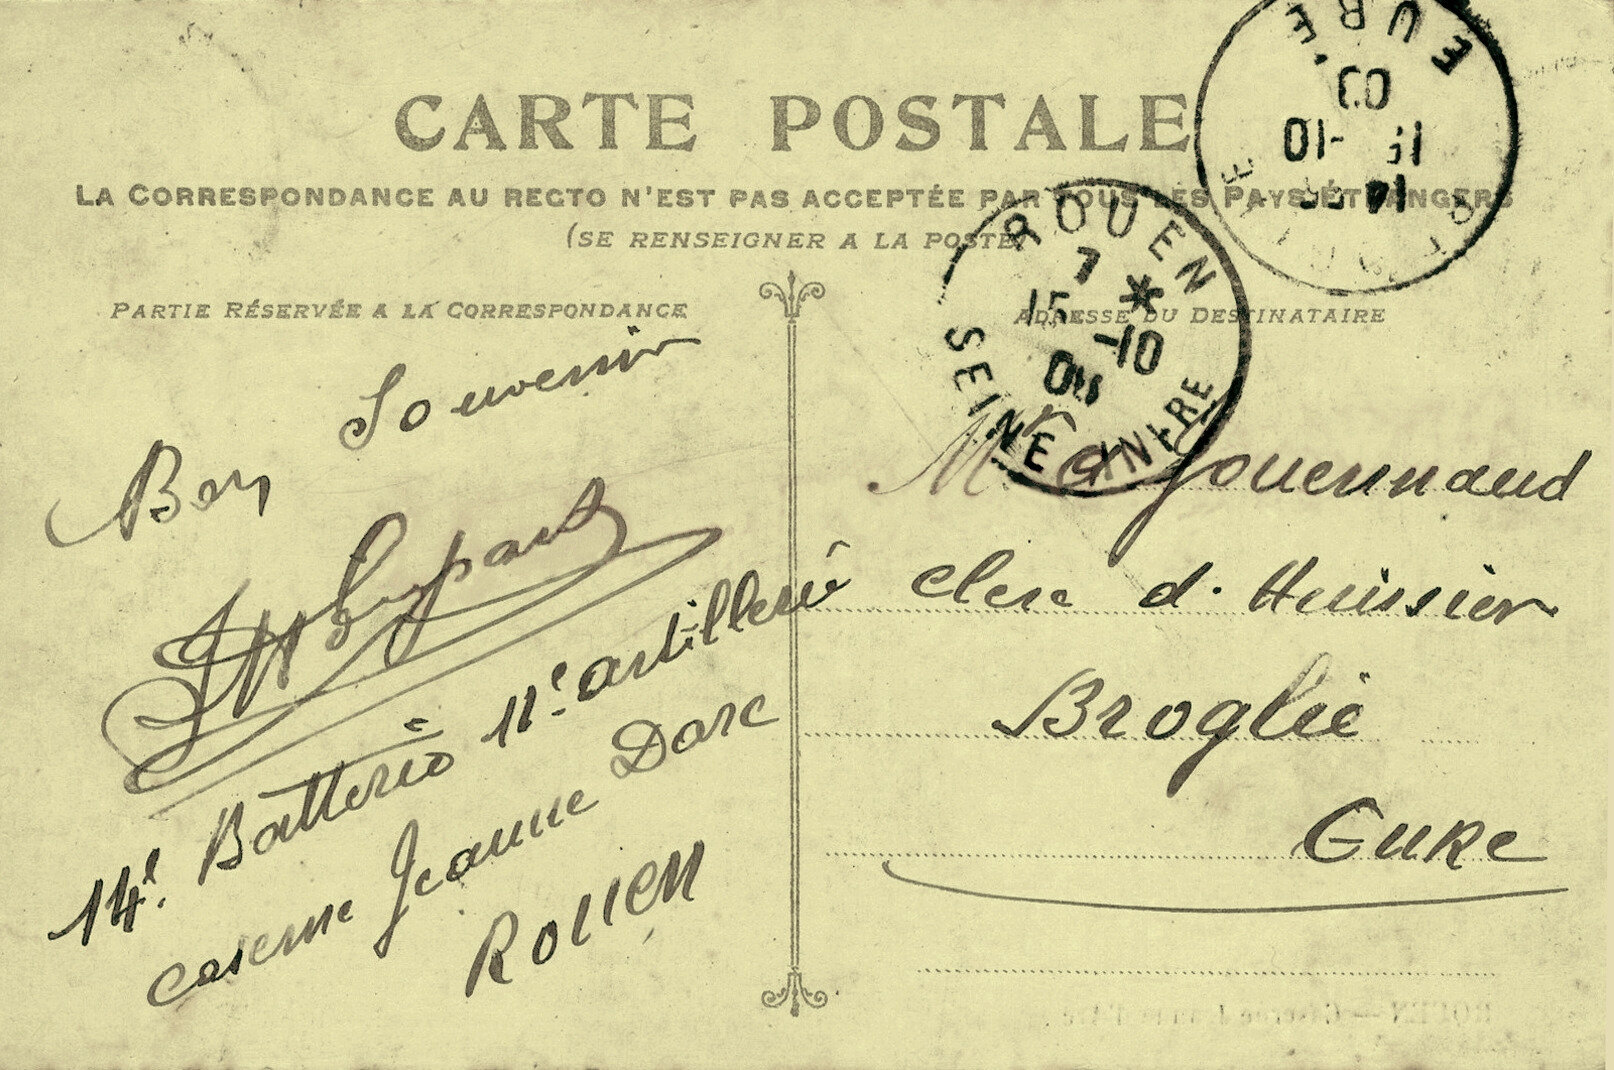 CARTE POSTALE
LA CORRESPONDANCE AU RECTO N'EST PAS ACCEPTÉE PAR TOUS LES PAYS ÉTRANGERS
(SE RENSEIGNER A LA POSTE)
PARTIE RÉSERVÉE A LA CORRESPONDANCE
Bon Souvenir
14e. Batterie 11e. artillerie
caserne Jeanne Darc
ROUEN
ADRESSE DU DESTINATAIRE
Mr Gouennaud
Clerc d. Huissier
Broglie
Eure
ROUEN
7 *
15 -10
SEINE INFRE
EURE